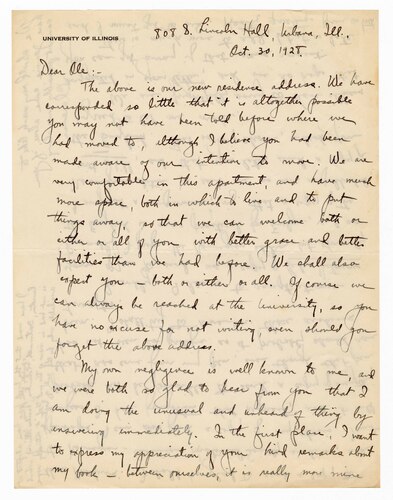 UNIVERSITY OF ILLINOIS
808 S. Lincoln Hall, Urbana, Ill.,
Oct. 30, 1928.
Dear Ole:-
The above is our new residence address. We have
corresponded so little that it is altogether possible
you may not have been told before where we
had moved to, although I believe you had been
made aware of our intention to move. We are
very comfortable in this apartment, and have much
more space, both in which to live and to put
things away, so that we can welcome both or
either or all of you with better grace and better
facilities than we had before. We shall also
expect you - both or either or all. Of course we
can always be reached at the University, so you
have no excuse for not writing, even should you
forget the above address.
My own negligence is well known to me, and
we were both so glad to hear from you that I
am doing the unusual and unheard of thing by
answering immediately. In the first place, I want
to express my appreciation of your kind remarks about
my book - between ourselves, it is really more mine